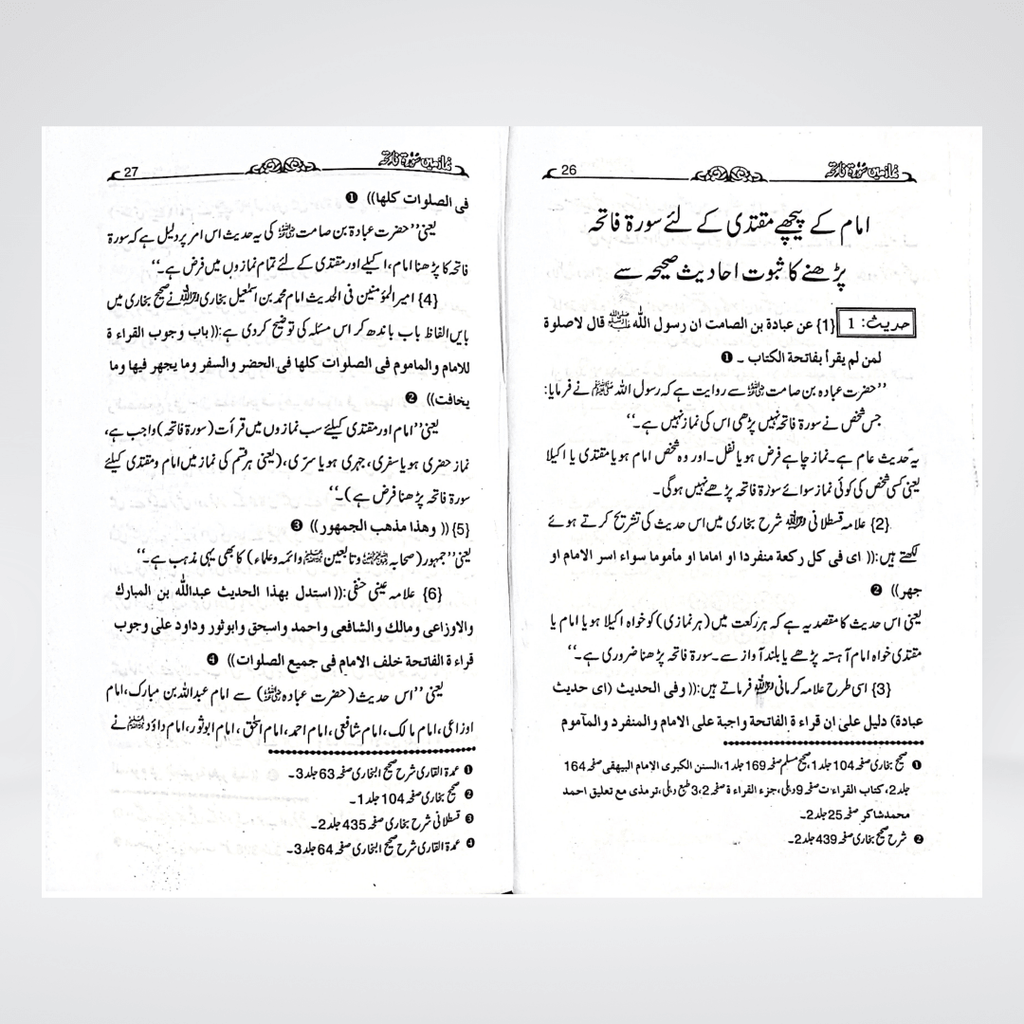 26
نماز میں سورۃ فاتحہ
امام کے پیچھے مقتدی کے لئے سورۃ فاتحہ
پڑھنے کا ثبوت احادیث صحیحہ سے
حدیث: 1 {1} عن عبادة بن الصامت ان رسول اللہ ﷺ قال لاصلوة
لمن لم يقرأ بفاتحة الكتاب ۔ ❶
’’حضرت عبادہ بن صامت رضی اللہ عنہ سے روایت ہے کہ رسول اللہ ﷺ نے فرمایا:
جس شخص نے سورۃ فاتحہ نہیں پڑھی اس کی نماز نہیں ہے۔‘‘
یہ حدیث عام ہے۔ نماز چاہے فرض ہو یا نفل۔ اور وہ شخص امام ہو یا مقتدی یا اکیلا
یعنی کسی شخص کی کوئی نماز سوائے سورۃ فاتحہ پڑھے نہیں ہوگی۔
{2} علامہ قسطلانی رحمہ اللہ شرح بخاری میں اس حدیث کی تشریح کرتے ہوئے
لکھتے ہیں:(( ای فی کل رکعة منفردا او اماما او مأموما سواء اسر الامام او
جهر)) ❷
یعنی اس حدیث کا مقصد یہ ہے کہ ہر رکعت میں (ہر نمازی) کو خواہ اکیلا ہو یا امام یا
مقتدی خواہ امام آہستہ پڑھے یا بلند آواز سے۔ سورۃ فاتحہ پڑھنا ضروری ہے۔‘‘
{3} اسی طرح علامہ کرمانی رحمہ اللہ فرماتے ہیں:(( وفی الحدیث (ای حدیث
عبادة) دلیل علی ان قراء ة الفاتحة واجبة علی الامام والمنفرد والمأموم
❶ صحیح بخاری صفحہ 104 جلد 1، صحیح مسلم صفحہ 169 جلد 1، السنن الکبری الامام البیہقی صفحہ 164
جلد 2، کتاب القراء ت صفحہ 9 دہلی، جزء القراء ة صفحہ 2، 3 طبع دہلی، ترمذی مع تعلیق احمد
محمد شاکر صفحہ 25 جلد 2۔
❷ شرح صحیح بخاری صفحہ 439 جلد 2۔
27
نماز میں سورۃ فاتحہ
فی الصلوات کلھا)) ❶
یعنی’’ حضرت عبادۃ بن صامت رضی اللہ عنہ کی یہ حدیث اس امر پر دلیل ہے کہ سورۃ
فاتحہ کا پڑھنا امام، اکیلے اور مقتدی کے لئے تمام نمازوں میں فرض ہے۔‘‘
{4} امیر المؤمنین فی الحدیث امام محمد بن اسمٰعیل بخاری رحمہ اللہ نے صحیح بخاری میں
بایں الفاظ باب باندھ کر اس مسئلہ کی توضیح کردی ہے:((باب وجوب القراء ة
للامام والماموم فی الصلوات کلھا فی الحضر والسفر وما یجهر فیها وما
یخافت)) ❷
یعنی’’ امام اور مقتدی کیلئے سب نمازوں میں قرأت (سورۃ فاتحہ) واجب ہے،
نماز حضری ہو یا سفری، جہری ہو یا سرّی، (یعنی ہر قسم کی نماز میں امام و مقتدی کیلئے
سورۃ فاتحہ پڑھنا فرض ہے)۔‘‘
{5} (( وھذا مذھب الجمهور)) ❸
یعنی’’ جمہور (صحابہ رضی اللہ عنہم وتابعین رحمہم اللہ وائمہ وعلماء) کا بھی یہی مذہب ہے۔‘‘
{6} علامہ عینی حنفی:(( استدل بهذا الحدیث عبداللہ بن المبارک
والاوزاعی ومالک والشافعی واحمد واسحق وابوثور وداود علی وجوب
قراء ة الفاتحة خلف الامام فی جمیع الصلوات)) ❹
یعنی’’ اس حدیث (حضرت عبادہ رضی اللہ عنہ) سے امام عبداللہ بن مبارک، امام
اوزاعی، امام مالک، امام شافعی، امام احمد، امام اسحٰق، امام ابوثور، امام داؤد رحمہم اللہ نے
❶ عمدۃ القاری شرح صحیح البخاری صفحہ 63 جلد 3۔
❷ صحیح بخاری صفحہ 104 جلد 1۔
❸ قسطلانی شرح بخاری صفحہ 435 جلد 2۔
❹ عمدۃ القاری شرح صحیح البخاری صفحہ 64 جلد 3۔